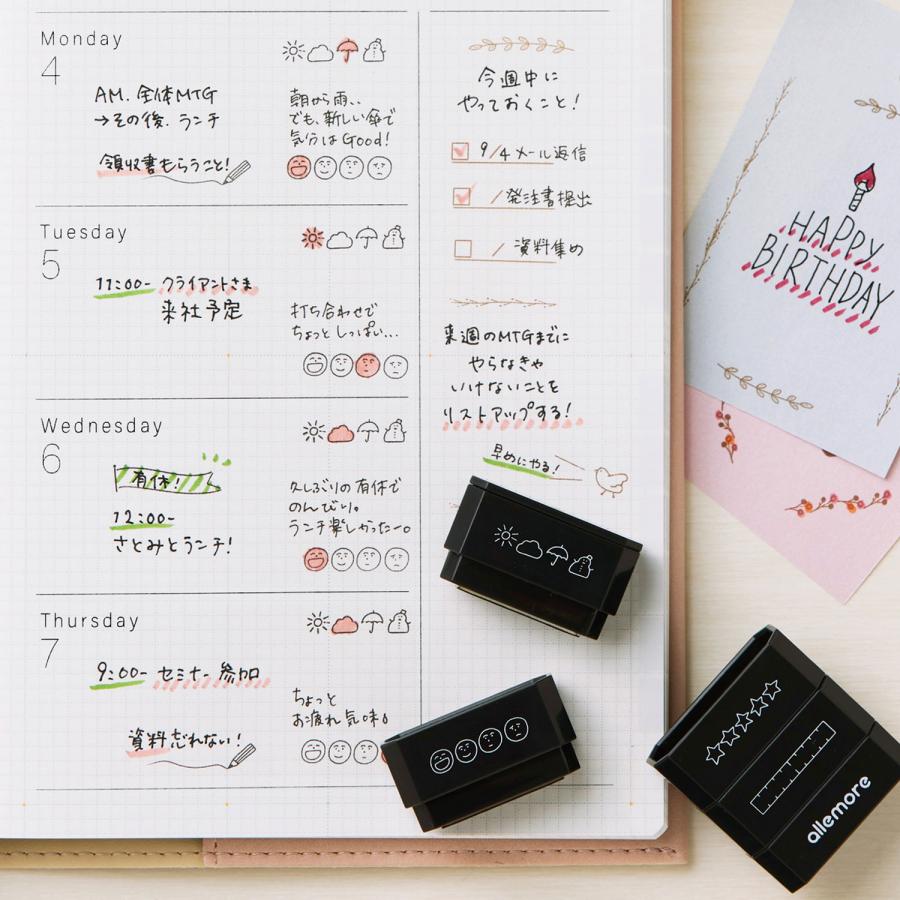 Monday
4
AM. 全体MTG
→その後. ランチ
領収書もらうこと!
朝から雨、、
でも、新しい傘で
気分はGood!
Tuesday
5
11:00- クライアントさま
来社予定
打ち合わせで
ちょっとしっぱい...
Wednesday
6
有休!
12:00-
さとみとランチ!
久しぶりの有休で
のんびり。
ランチ楽しかったー。
Thursday
7
9:00- セミナー参加
資料忘れない!
ちょっと
お疲れ気味
今週中に
やっておくこと!
9/4 メール返信
/ 発注書提出
/ 資料集め
来週のMTGまでに
やらなきゃ
いけないことを
リストアップする!
早めにやる!
HAPPY
BIRTHDAY
allemore